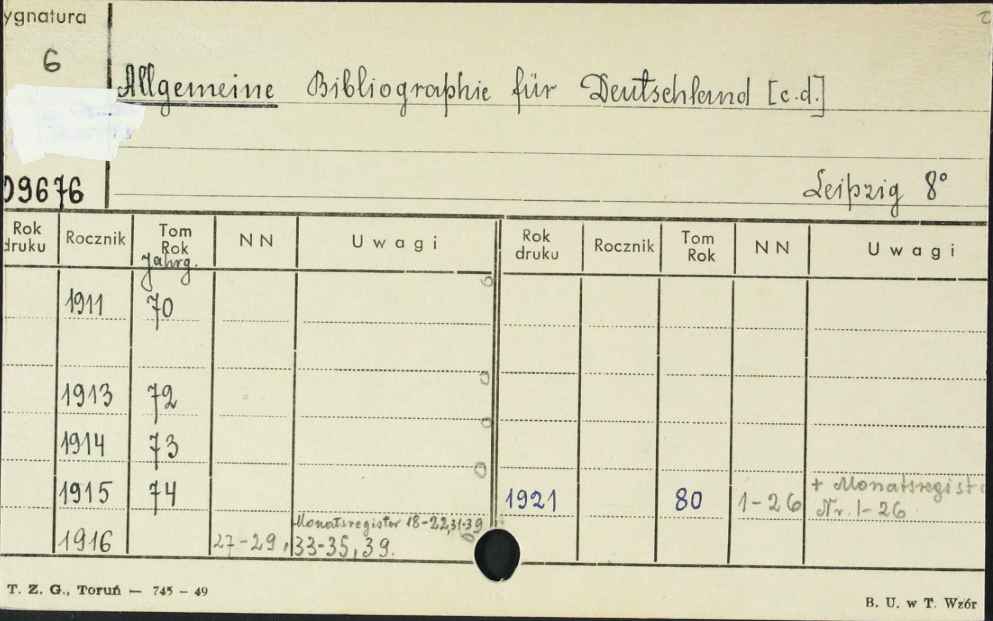 ygnatura
6
Allgemeine Bibliographie für Deutschland [c.d.]
09676
Leipzig 8°
Rok druku Rocznik Tom Rok Jahrg. NN Uwagi Rok druku Rocznik Tom Rok NN Uwagi
1911 70
1913 72
1914 73
1915 74 1921 80 1-26 + Monatsregist
Nr. 1-26
Monatsregister 18-22,31-39
1916 27-29, 33-35, 39.
T. Z. G., Toruń — 745 - 49
B. U. w T. Wzór